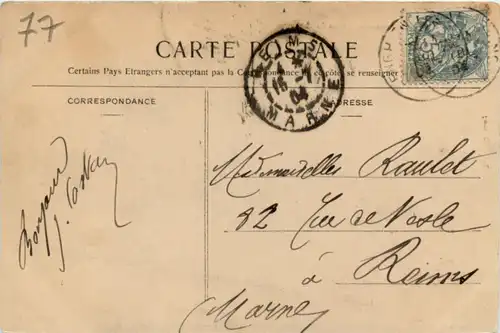 77
CARTE POSTALE
Certains Pays Etrangers n'acceptant pas la Correspondance de ce côté se renseigner
CORRESPONDANCE
ADRESSE
REIMS
16
04
MARNE
Bonjour
J.
Mesdemoiselles Raulet
82 Rue de Nesle
à
Reims
Marne